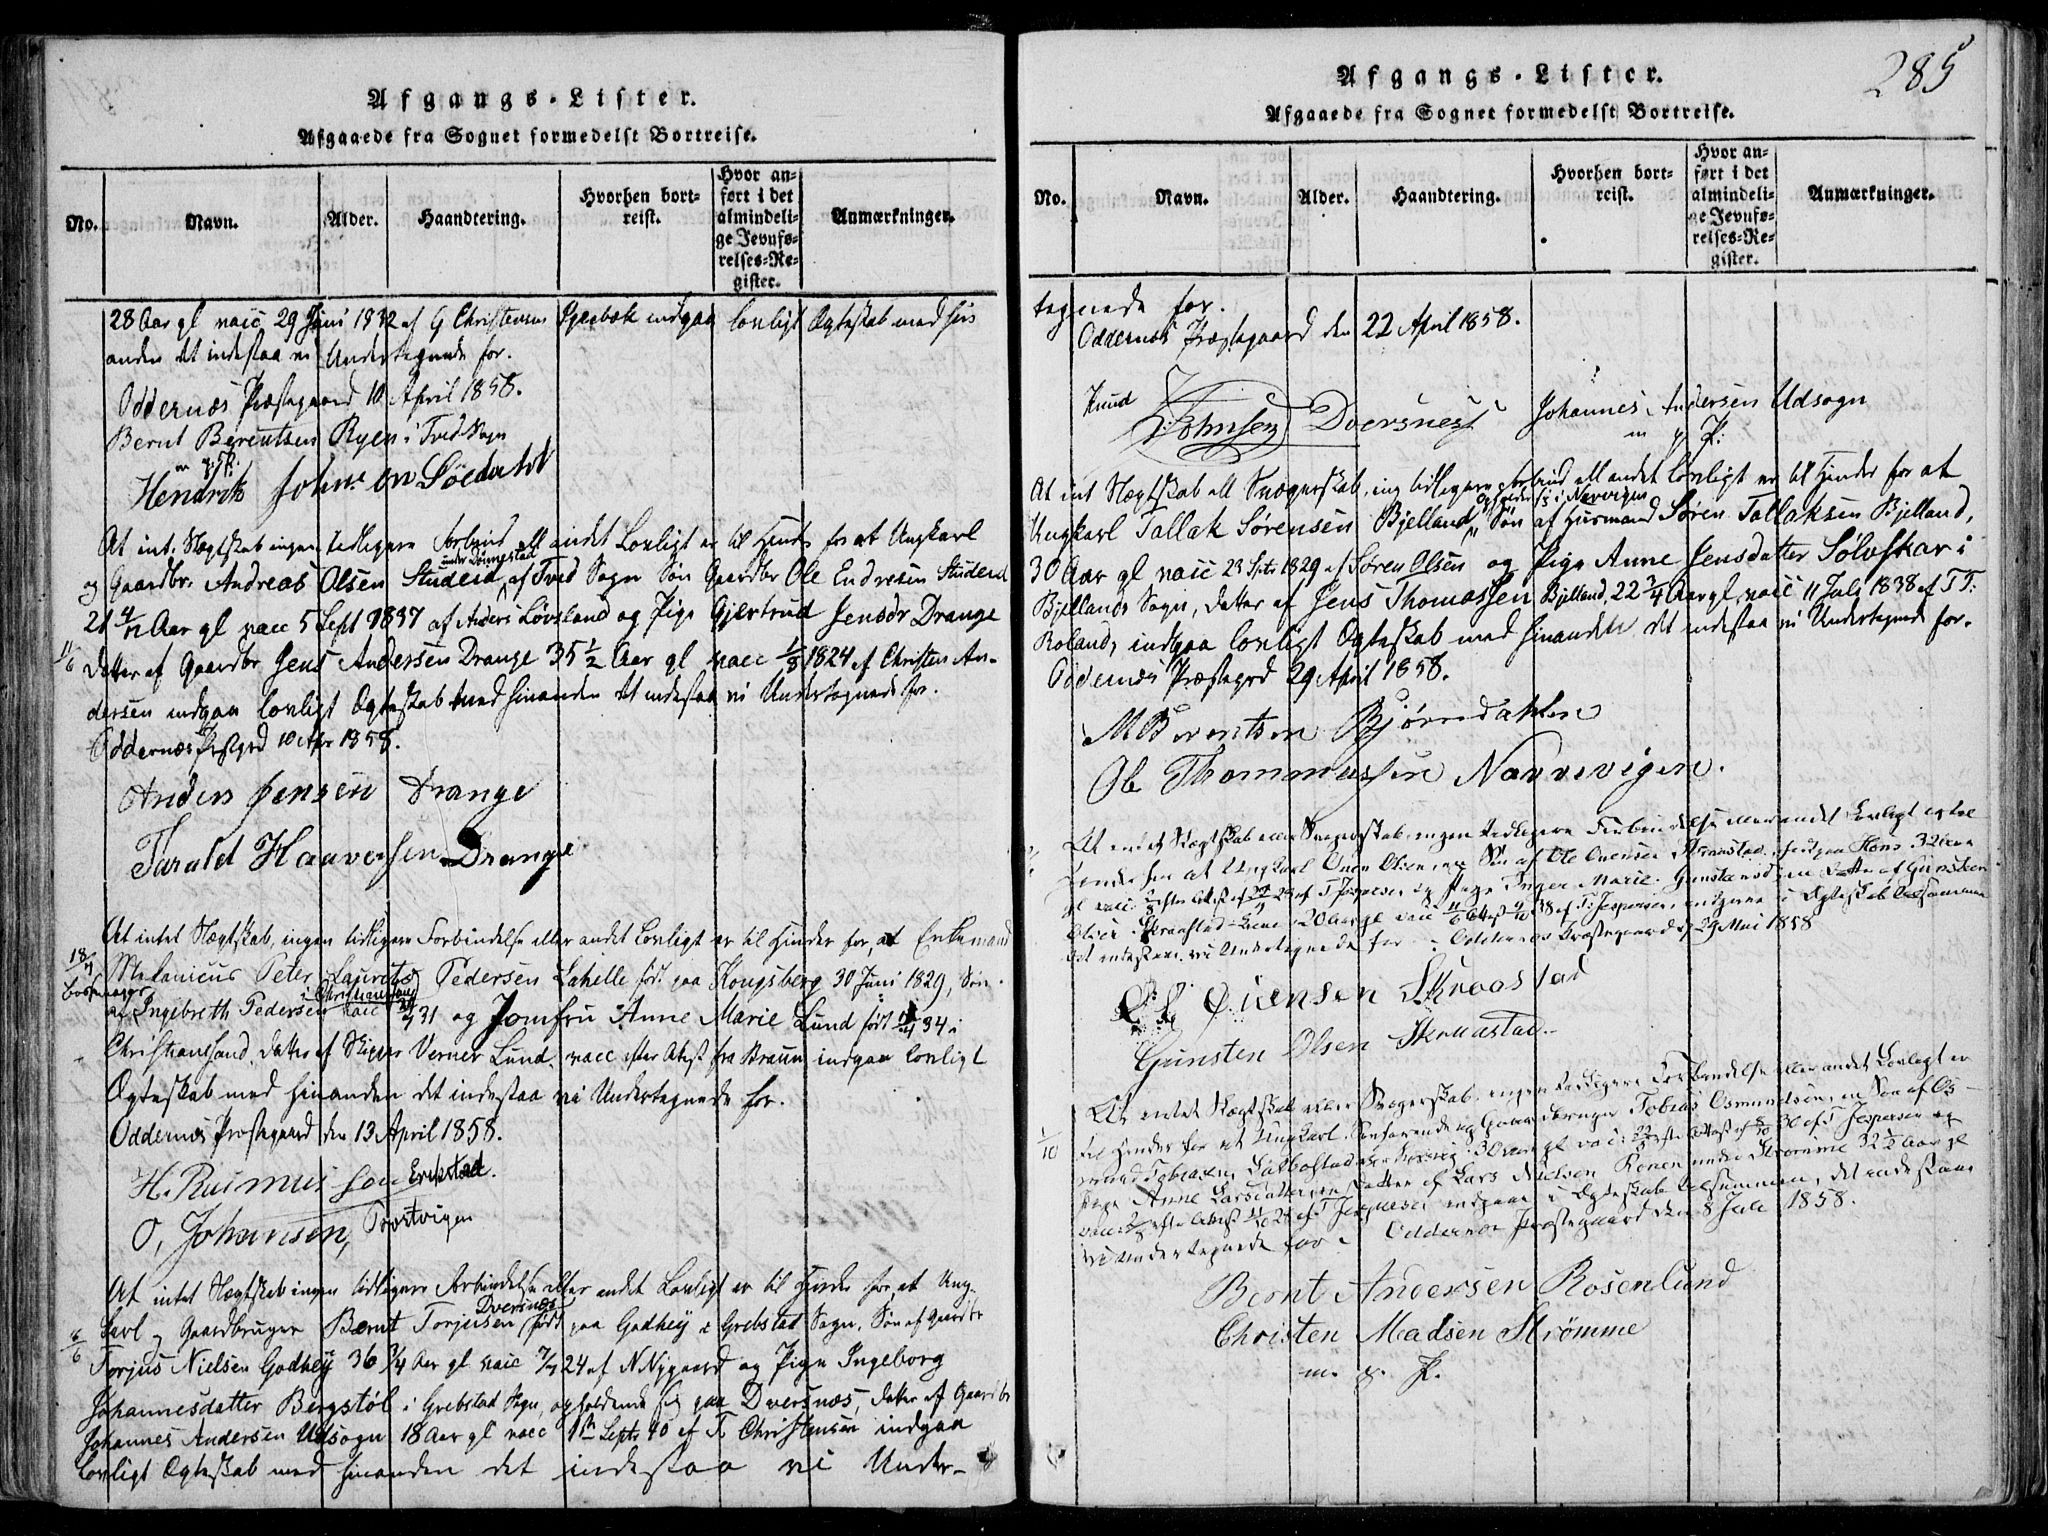 Afgangs-Lister.
Afgaaede fra Sognet formedelst Bortreise.
No.
Navn.
Alder.
Haandtering.
Hvorhen bort-
reist.
Hvor an-
ført i det
almindeli-
ge Jevnfø-
relses-Re-
gister.
Anmærkninger.
28 Aar gl vacc 29 Juni 1832 af G Christensen indgaa lovligt Ægteskab med hin
anden det indestaa vi Undertegnede for.
Oddernæs Præstegaard 10 April 1858.
Bernt Berentsen Ryen i Tved Sogn
m. p. P.
Hendrik Johnsen Söedahl
At int. Slægtskab ingen tidligere Forbind ell andet Lovligt er til Hinder for at Ungkarl
og Gaardbr. Andreas Olsen Studeid af Tved Sogn Søn Gaardbr Ole Endresen Studeid
21 4/12 Aar gl vacc 5 Sept 1837 af Anders Løvsland og Pige Gjertrud Jensdr Drange
11/6 Datter af Gaardbr. Jens Andersen Drange 35 1/2 Aar gl vacc 1/8 1824 af Christen An-
dersen indgaa lovligt Ægteskab med hinanden det indestaa vi Undertegnede for.
Oddernæs Præstgrd 10 Apr 1858.
Anders Jensen Drange
Tarald Haaversen Drange
At intet Slægtskab, ingen tidligere Forbindelse eller andet Lovligt er til Hinder for, at Enkemand
18/4 Mekanicus Peter Laurits Pedersen Lahelle født paa Kongsberg 30 Juni 1829, Søn
i Christiansand
af Ingebreth Pedersen vacc 31 og Jomfru Anne Marie Lund født 34 i
Christiansand, Datter af Skipper Verner Lund, vacc efter Attest fra Braun indgaa lovligt
Ægteskab med hinanden det indestaa vi Undertegnede for.
Oddernæs Præstegaard den 13 April 1858.
H. Rasmussen Erikstad.
O, Johansen,
At intet Slægtskab ingen tidligere Forbindelse eller andet Lovligt er til Hinder for, at Ung-
Dversnæs
8/6 karl og Gaardbruger Bernt Torjusen født paa Godhey i Grebstad Sogn, Søn af Gaardbr
Torjus Nielsen Godhey 36 3/4 Aar gl vacc 7/7 24 af N Nygaard og Pige Ingeborg
Johannesdatter Bergstøl i Grebstad Sogn, opholdende sig paa Dversnæs, Datter af Gaardbr
Johannes Andersen Udsogn 18 Aar gl vacc 1 Septr 40 af T. Christensen indgaa
lovligt Ægteskab med hinanden det indestaa vi Under-
285
Afgangs-Lister.
Afgaaede fra Sognet formedelst Bortreise.
No.
Navn.
Alder.
Haandtering.
Hvorhen bort-
reist.
Hvor an-
ført i det
almindeli-
ge Jevnfø-
relses-Re-
gister.
Anmærkninger.
tegnede for.
Oddernæs Præstegaard den 22 April 1858.
Knud Johnsen Dversnes Johannes Andersen Udsogn
m. p. P.
At int Slægtskab ell Svogerskab, ing tidligere Forbind ell andet lovligt er til Hinder for at
Ungkarl Tallak Sørensen Bjelland, Søn af Husmand Søren Tallaksen Bjelland,
30 Aar gl vacc 23 Sptr 1829 af Søren Olsen og Pige Anne Jensdatter Sølvskar i
Bjellands Sogn, Datter af Jens Thomassen Bjelland, 22 3/4 Aar gl, vacc 11 Juli 1838 af TT:
Roland, indgaa lovligt Ægteskab med hinanden, det indestaa vi Undertegnede for.
Oddernæs Præstegrd 29 April 1858.
M Berentsen Bjørndahlen
Ole Thommassen Navrevigen.
At intet Slægtskab eller Svogerskab, ingen tidligere Forbindelse eller andet Lovligt er til
Hinder for at Ungkarl Ouen Olsen, Søn af Ole Ouensen Straastad, 32 Aar
gl vacc. efter Attest af 29 af T Jespersen og Pige Inger Marie Gunstensd en Datter af Gunsten
Olsen Straastad 20 Aar gl vacc Attest 38 af T: Jespersen, indgaae i Ægteskab tilsammen
det indestaae vi Undertegnede for. Oddernæs Præstegaard 29 Mai 1858
Ole Øuensen Skraastad
Gunsten Olsen Skraastad.
At intet Slægtskab eller Svogerskab, ingen tidligere Forbindelse eller andet Lovligt er
1/10 til Hinder for at Ungkarl, Søefarende og Gaardbruger Tobias Osmundsen, en Søn af Os-
mund Tobiasen 30 Aar gl vacc: efter Attest af 30 af T Jespersen og
Pige Anne Larsdatter, en Datter af Lars Nielsen Ronen under Strømme 32 1/2 Aar gl
vacc: efter Attest 26 af T Jespersen indgaae i Ægteskab tilsammen, det indestaae
vi Undertegnede for. Oddernæs Præstegaard den 8 Juli 1858.
Bernt Andersen Rosenlund
Christen Madsen Strømme
m. p. P.